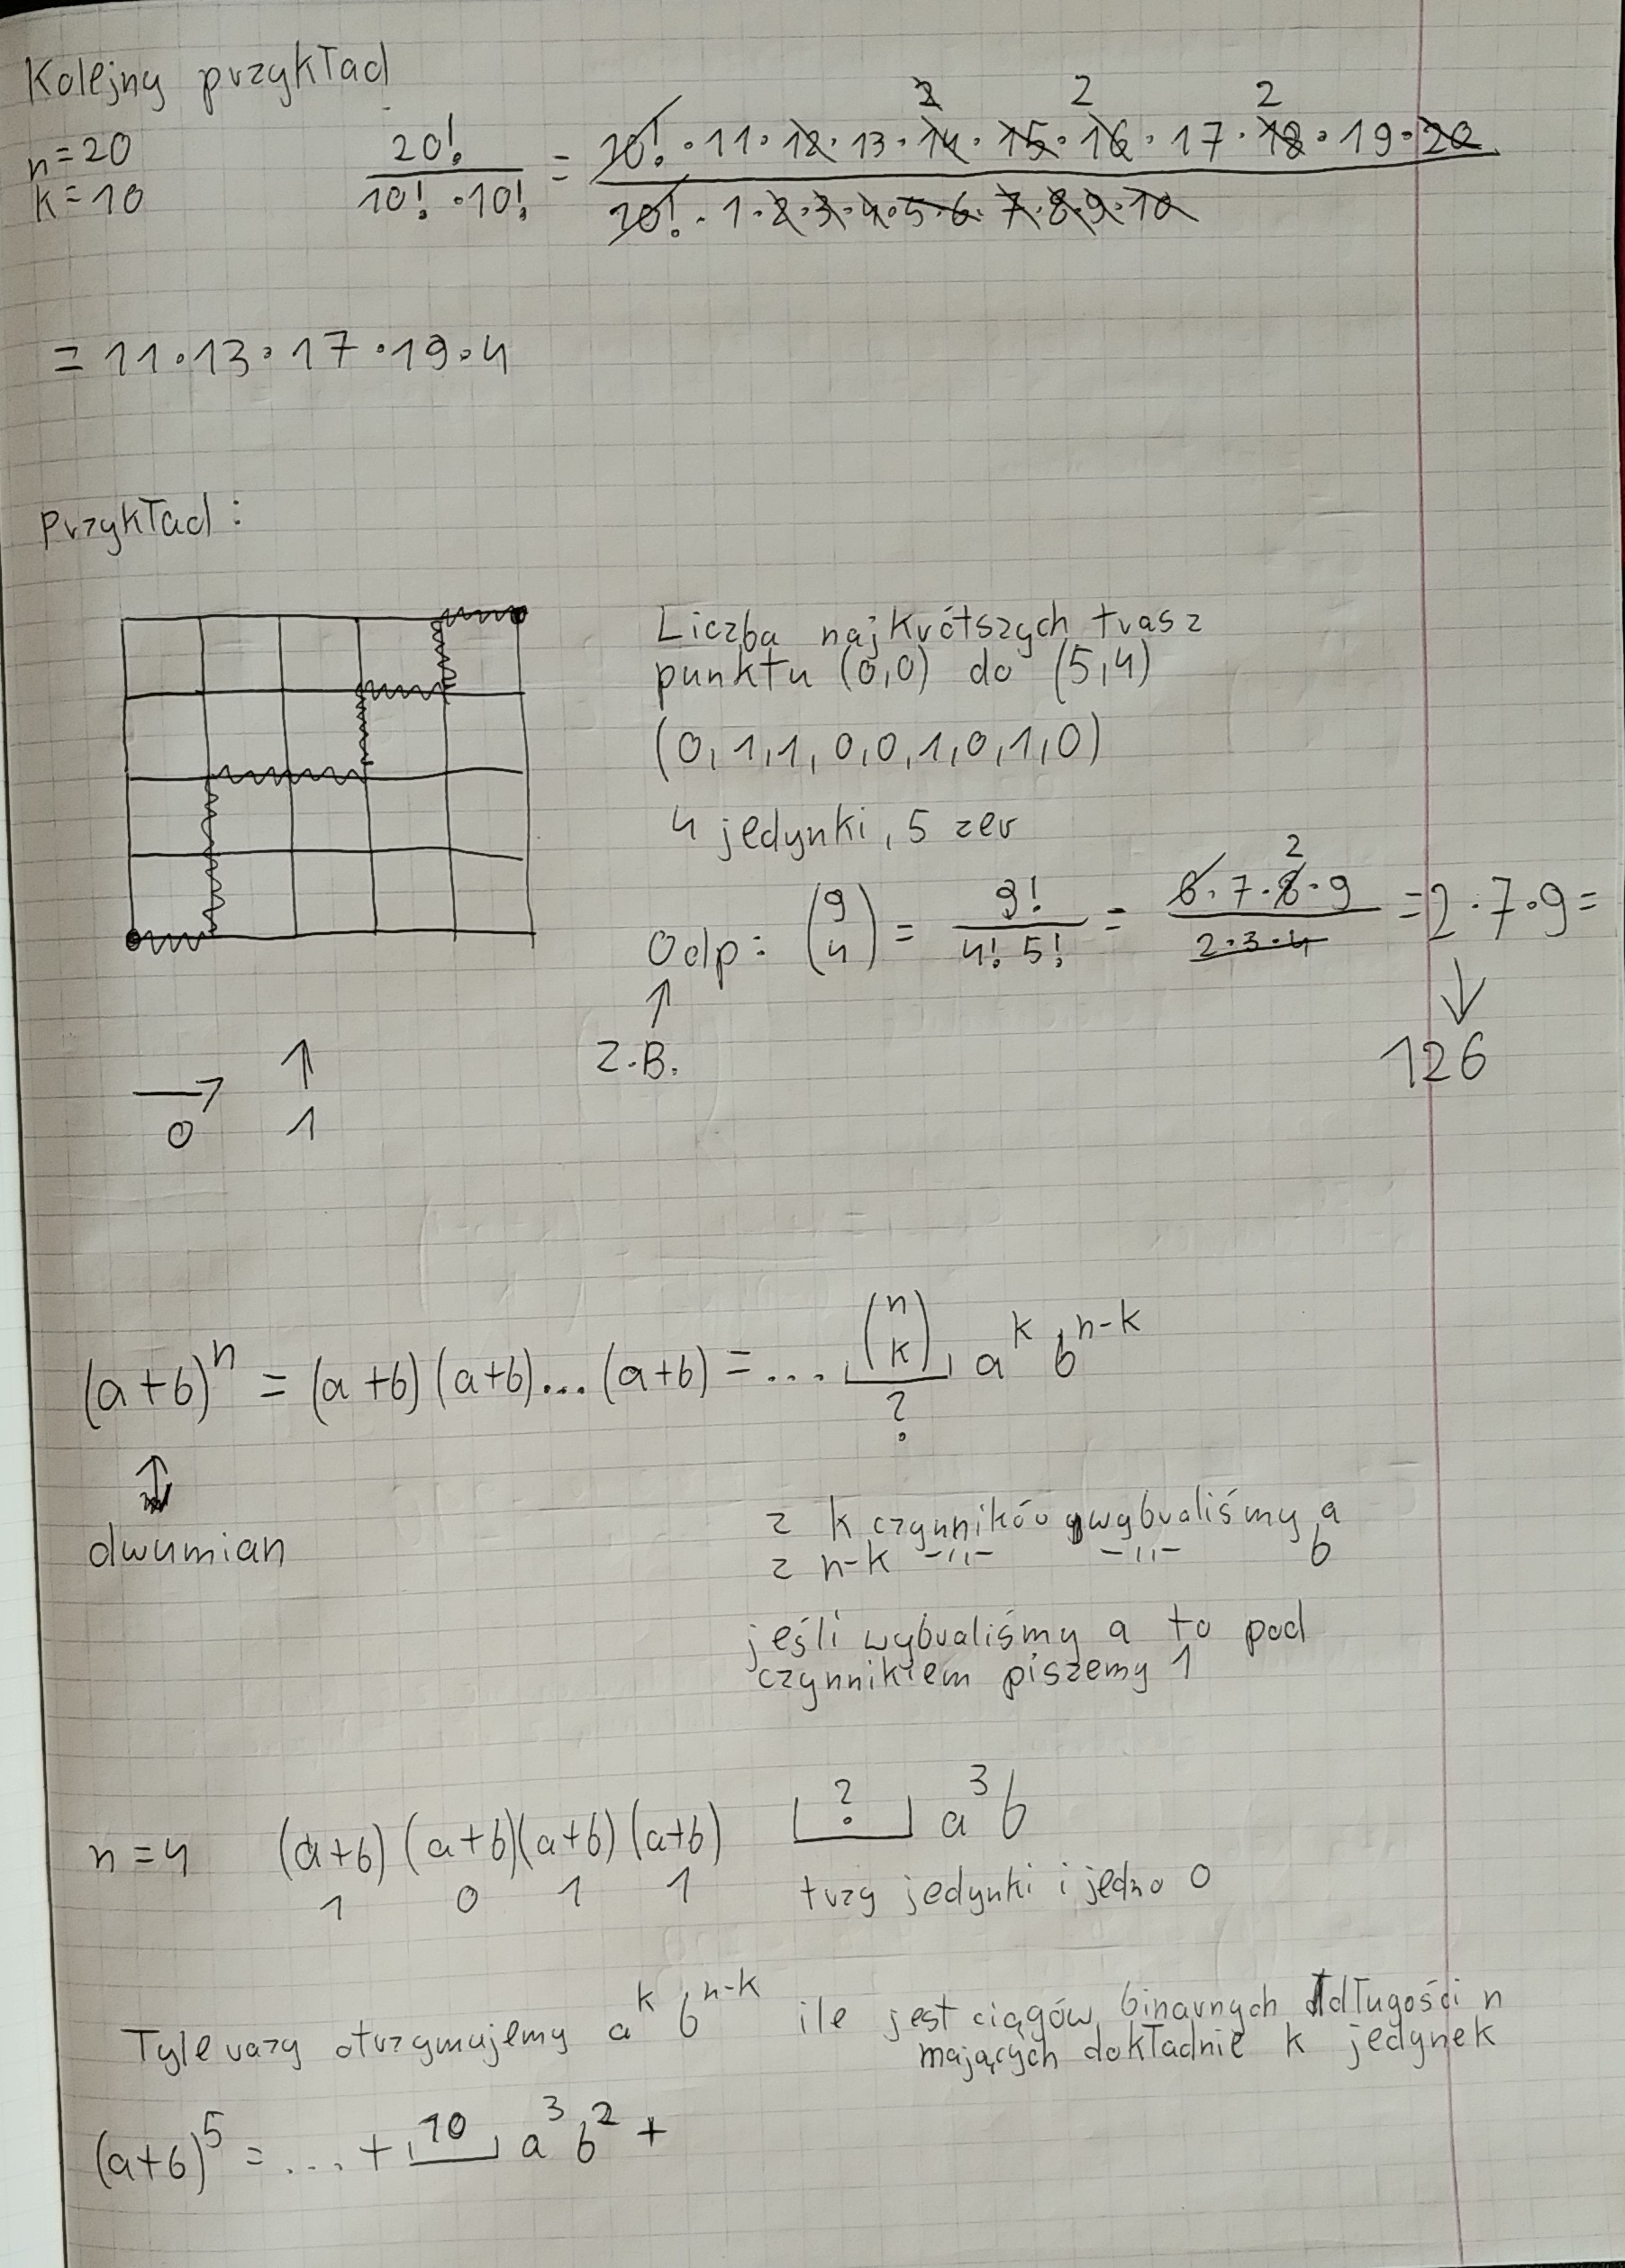 Kolejny przykład
n=20
k=10
20!/(10! · 10!) = (10! · 11 · 12 · 13 · 14 · 15 · 16 · 17 · 18 · 19 · 20)/(10! · 1 · 2 · 3 · 4 · 5 · 6 · 7 · 8 · 9 · 10)
2 2 2
= 11 · 13 · 17 · 19 · 4
Przykład:
Liczba najkrótszych tras z
punktu (0,0) do (5,4)
(0,1,1,0,0,1,0,1,0)
4 jedynki, 5 zer
2
Odp: (9 4) = 9!/(4! 5!) = (6 · 7 · 8 · 9)/(2 · 3 · 4) = 2 · 7 · 9 =
↑ ↓
Z.B. 126
→ ↑
0 1
(a+b)^n = (a+b)(a+b)...(a+b) = ... (n k) a^k b^{n-k}
?
↕
dwumian
z k czynników wybraliśmy a
z n-k -,,- -,,- b
jeśli wybraliśmy a to pod
czynnikiem piszemy 1
n=4 (a+b)(a+b)(a+b)(a+b) ? a^3 b
1 0 1 1 trzy jedynki i jedno 0
Tyle razy otrzymujemy a^k b^{n-k} ile jest ciągów binarnych długości n
mających dokładnie k jedynek
(a+b)^5 = ... + 10 a^3 b^2 +